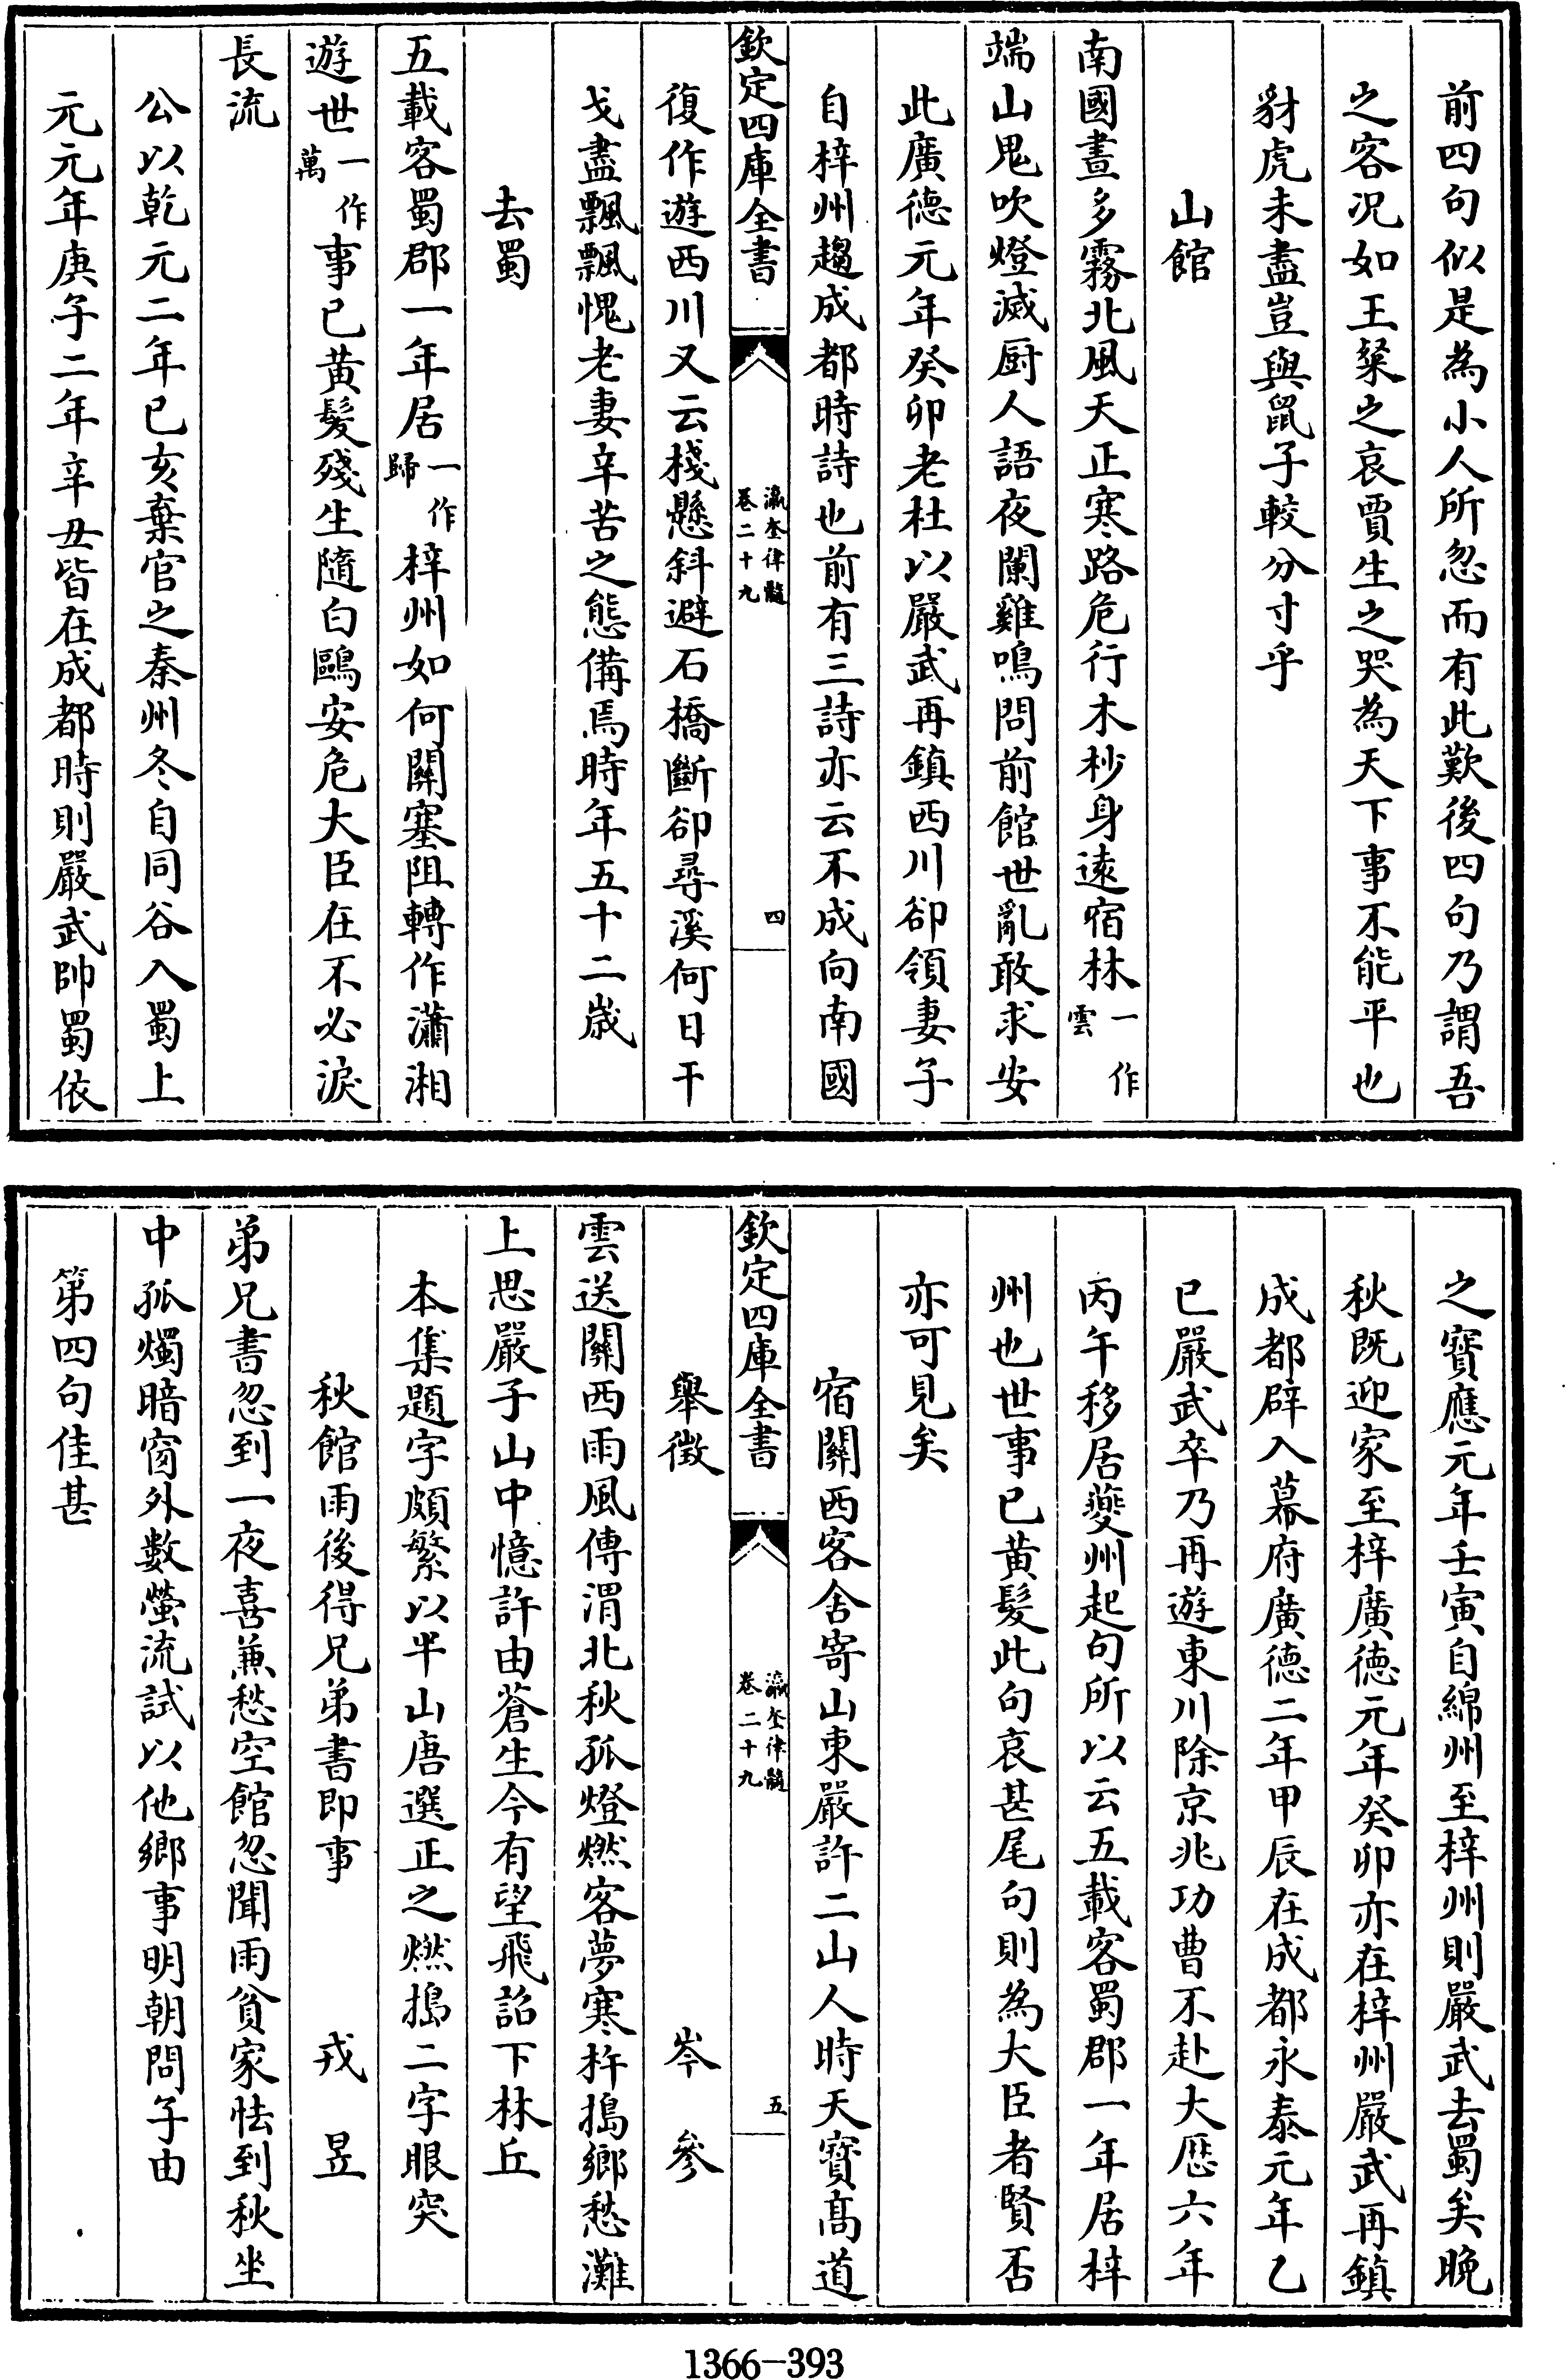 前四句似是為小人所忽而有此歎後四句乃謂吾
之客况如王粲之哀賈生之哭為天下事不能平也
豺虎未盡豈與鼠子較分寸乎
山館
南國晝多霧北風天正寒路危行木杪身逺宿林一作雲
端山鬼吹燈滅厨人語夜闌雞鳴問前館世亂敢求安
此廣徳元年癸卯老杜以嚴武再鎮西川卻領妻子
自梓州趨成都時詩也前有三詩亦云不成向南國
欽定四庫全書
瀛奎律髓
卷二十九
四
復作遊西川又云棧懸斜避石橋斷卻尋溪何日干
戈盡飄飄愧老妻辛苦之態備焉時年五十二歲
去蜀
五載客蜀郡一年居一作歸梓州如何關塞阻轉作瀟湘
遊世一作萬事已黄髮殘生隨白鷗安危大臣在不必淚
長流
公以乾元二年已亥棄官之秦州冬自同谷入蜀上
元元年庚子二年辛丑皆在成都時則嚴武帥蜀依
之寳應元年壬寅自綿州至梓州則嚴武去蜀矣晚
秋既迎家至梓廣徳元年癸卯亦在梓州嚴武再鎮
成都辟入幕府廣徳二年甲辰在成都永泰元年乙
巳嚴武卒乃再遊東川除京兆功曹不赴大厯六年
丙午移居夔州起句所以云五載客蜀郡一年居梓
州也世事已黄髮此句哀甚尾句則為大臣者賢否
亦可見矣
宿關西客舍寄山東嚴許二山人時天寳髙道
欽定四庫全書
瀛奎律髓
卷二十九
五
舉徴　岑參
雲送關西雨風傳渭北秋孤燈燃客夢寒杵搗鄉愁灘
上思嚴子山中憶許由蒼生今有望飛詔下林丘
本集題字頗繁以半山唐選正之燃搗二字眼突
秋館雨後得兄弟書即事　戎昱
弟兄書忽到一夜喜兼愁空館忽聞雨貧家怯到秋坐
中孤燭暗窗外數螢流試以他鄉事明朝問子由
第四句佳甚
1366-393